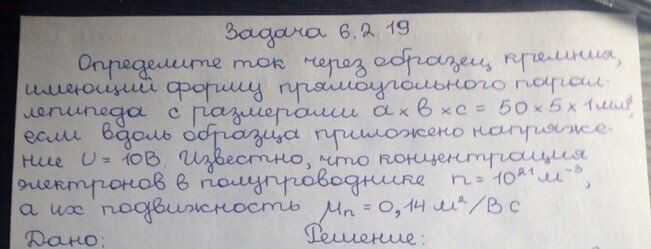 Задача 6.2.19
Определите ток через образец кремния,
имеющий форму прямоугольного парал-
лепипеда с размерами a×b×c = 50×5×1 мм³,
если вдоль образца приложено напряже-
ние U = 10В. Известно, что концентрация
электронов в полупроводнике n = 10²¹ м⁻³,
а их подвижность μₙ = 0,14 м²/В с
Дано: Решение: